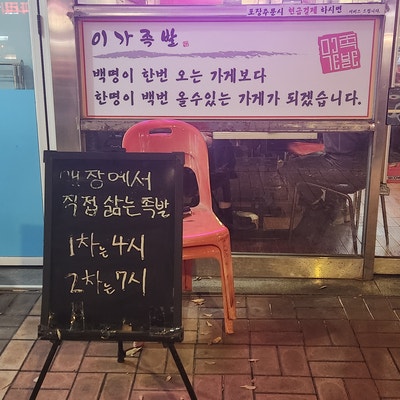 포장주문시 현금결제 하시면
이가족발
백명이 한번 오는 가게보다
한명이 백번 올수있는 가게가 되겠습니다.
매장에서
직접 삶는 족발
1차는 4시
2차는 7시